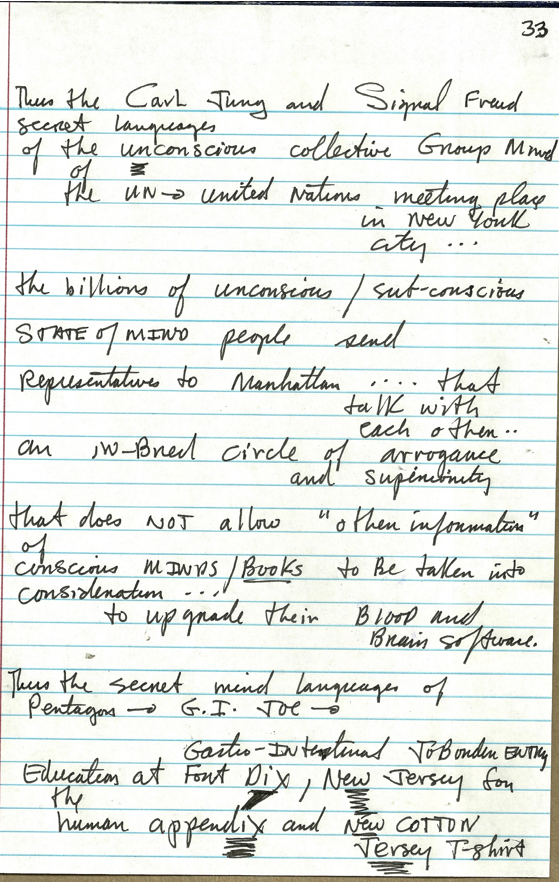 33
Thus the Carl Jung and Signal Freud
secret languages
of the unconscious collective Group Mind
of
the UN → united Nations meeting place
in New York
city ...
the billions of unconscious / sub-conscious
STATE of MIND people send
Representatives to Manhattan .... that
talk with
each other..
an in-Bred circle of arrogance
and superiority
that does NOT allow "other information"
of
conscious MINDS / Books to be taken into
consideration ...
to upgrade their Blood and
Brain software.
Thus the secret mind languages of
Pentagon → G.I. JOE →
Gastro-Intestinal ENTRY
Education at Fort Dix, New Jersey for
the
human appendix and New COTTON
Jersey T-shirt